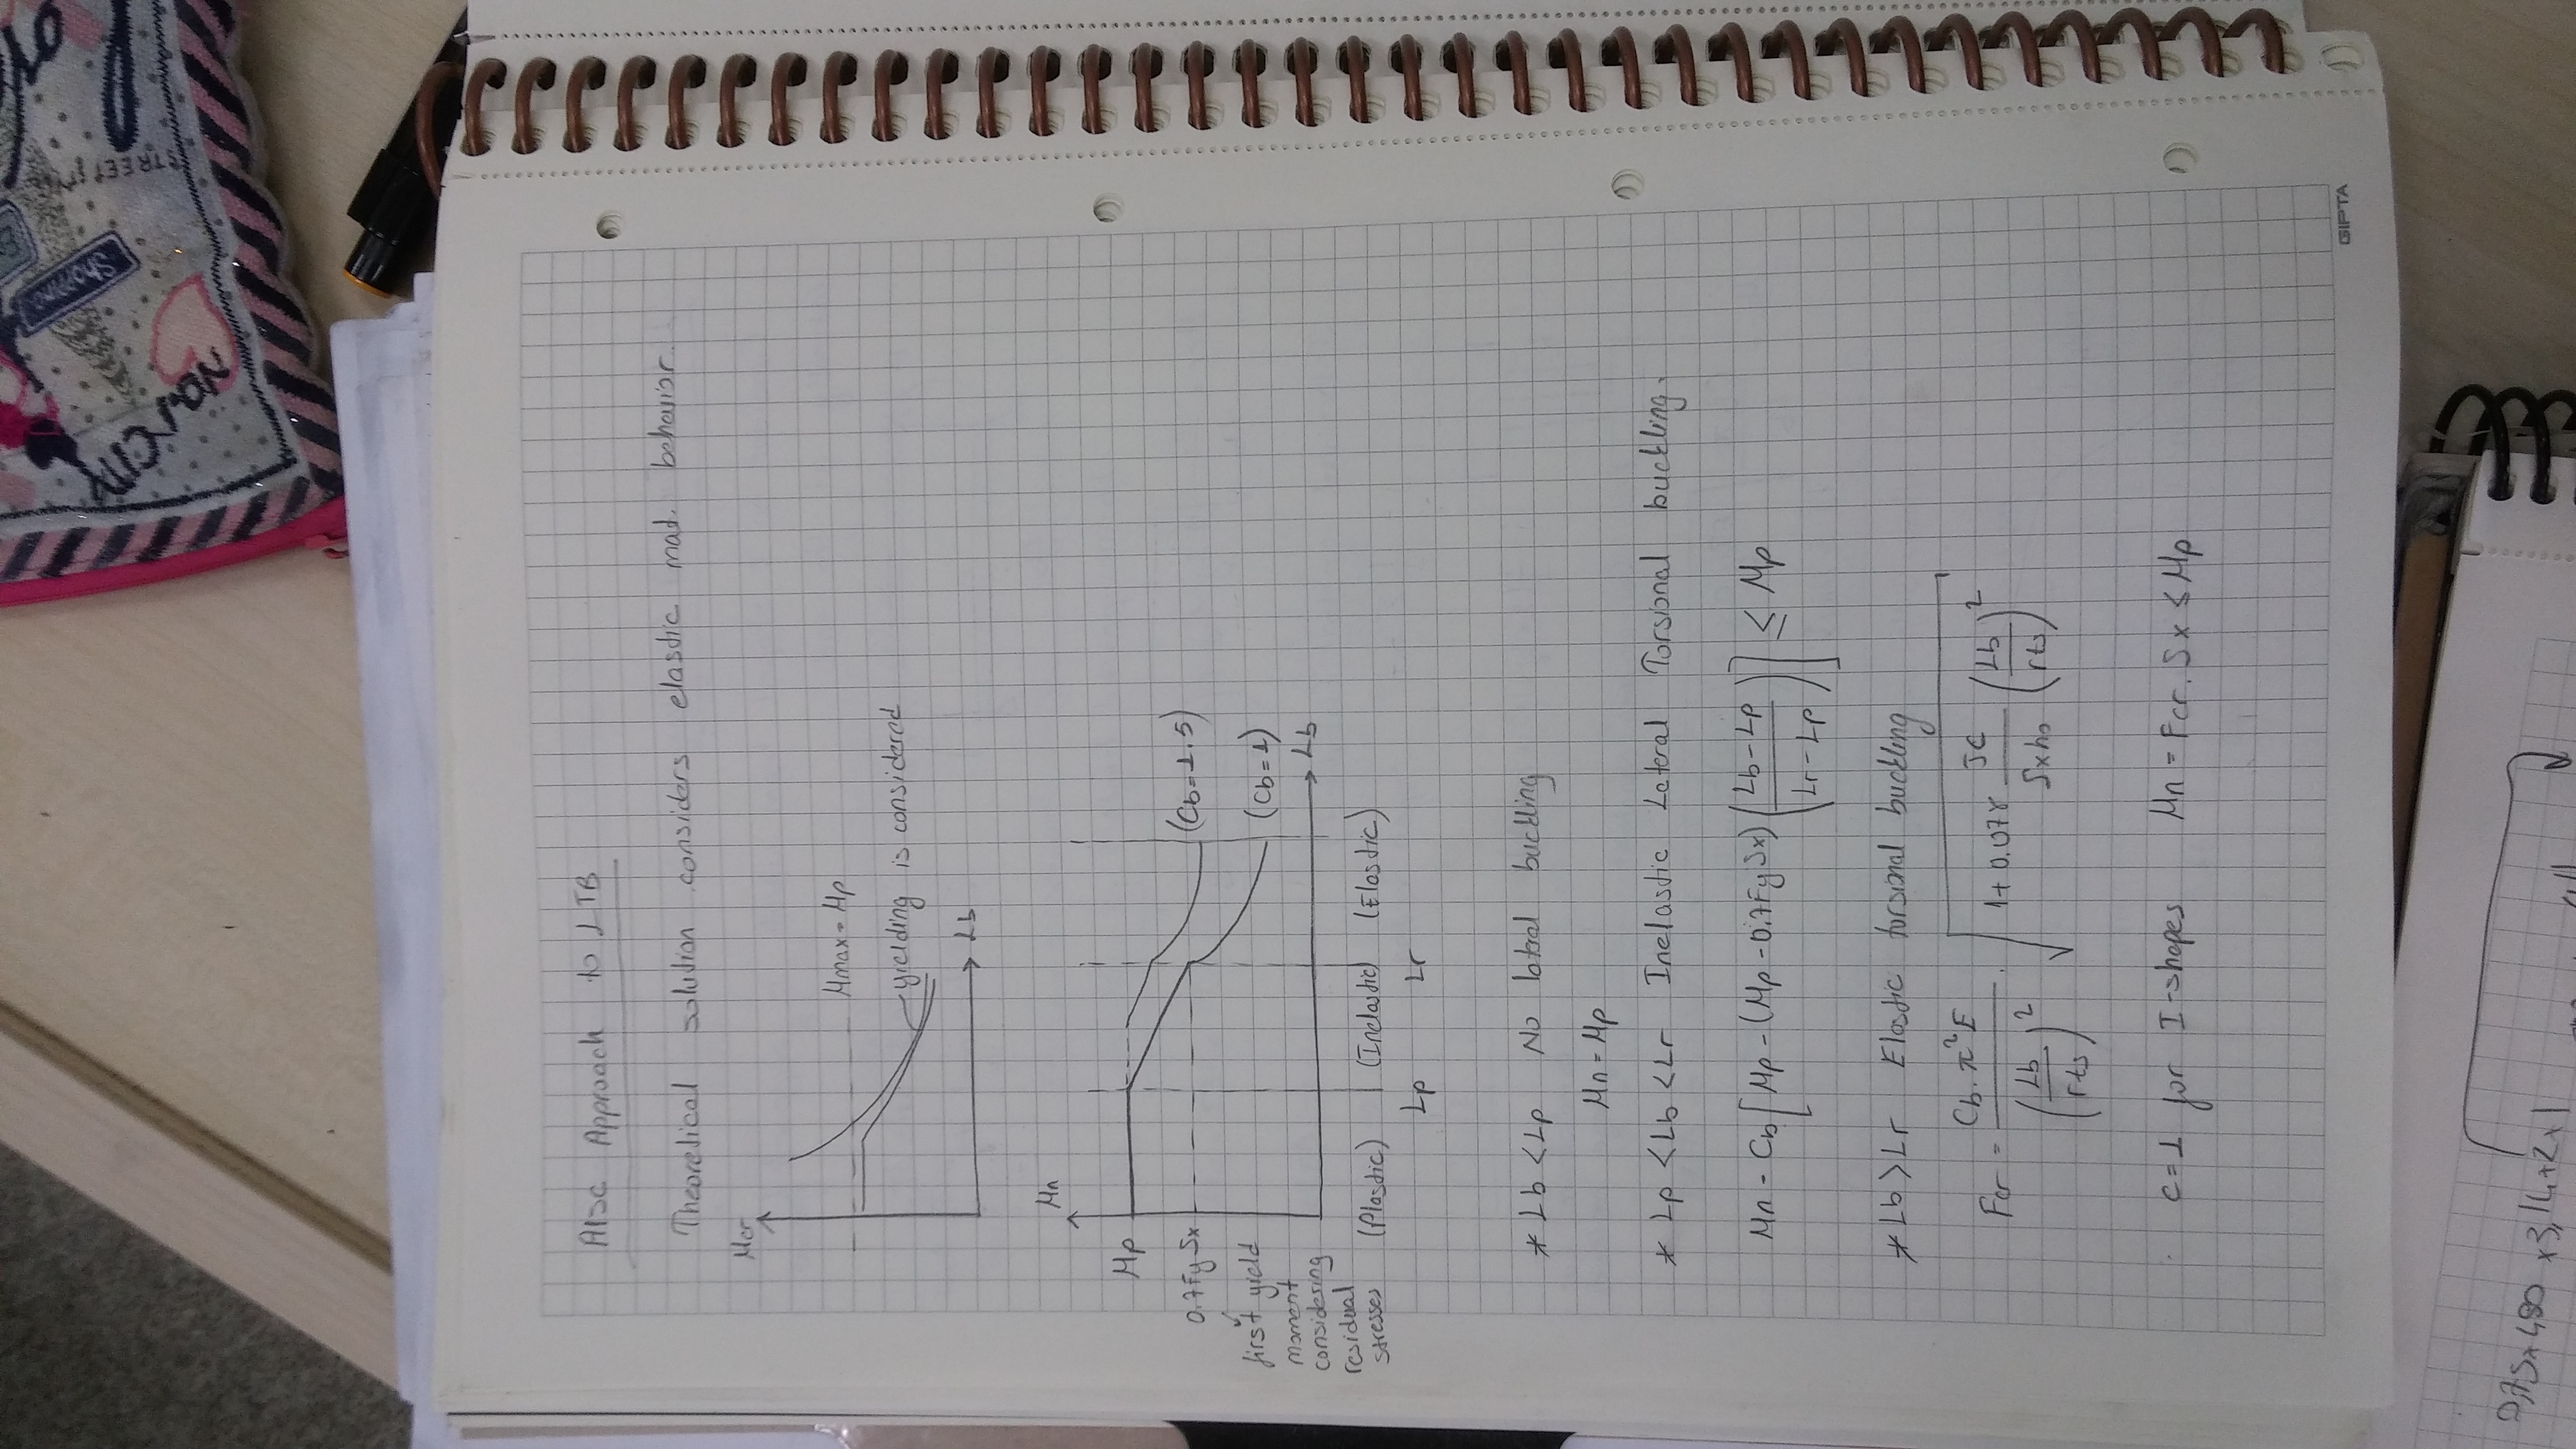 NEW YORK CITY
Shopping
STREET
AISC Approach to LTB
Theoretical solution considers elastic mat. behavior.
Mcr
Mmax = Mp
yielding is considered
Lb
Mn
Mp
0.7FySx
(Cb=1.5)
(Cb=1)
Lb
first yield
moment
considering
residual
stresses
(Plastic) (Inelastic) (Elastic)
Lp Lr
* Lb < Lp No lateral buckling
Mn = Mp
* Lp < Lb < Lr Inelastic Lateral Torsional buckling.
Mn = Cb [Mp - (Mp - 0.7FySx) ((Lb - Lp) / (Lr - Lp))] ≤ Mp
* Lb > Lr Elastic torsional buckling
Fcr = (Cb. π² E) / (Lb / rts)² . √(1 + 0.078 (JC / Sxho) (Lb / rts)²)
c=1 for I-shapes Mn = Fcr. Sx ≤ Mp
GIPTA
0,75x480 x3,14x2x1